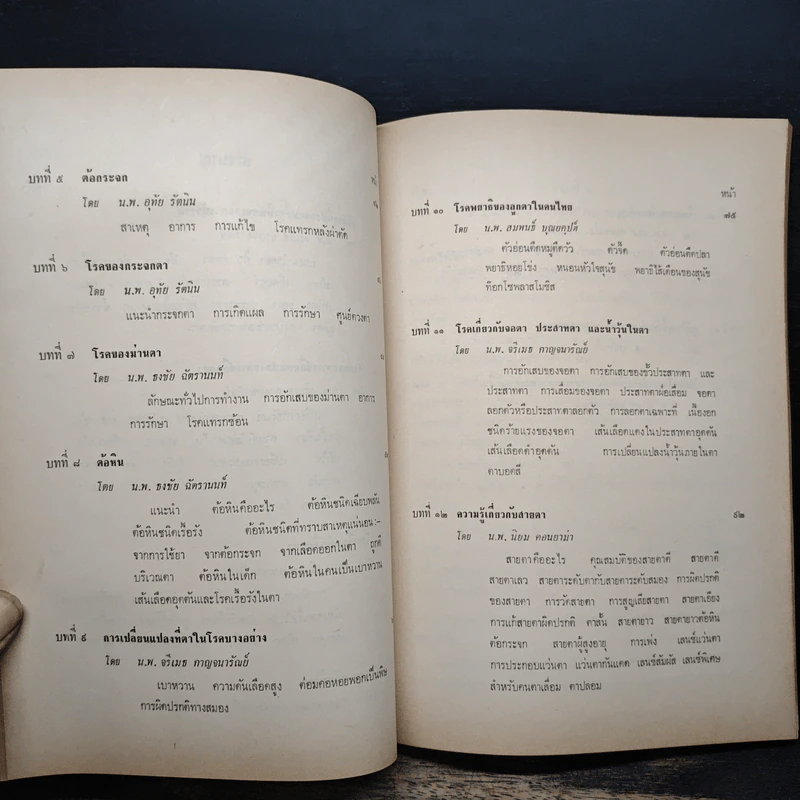 บทที่ ๕ ต้อกระจก
โดย น.พ. อุทัย รัตนิน
สาเหตุ อาการ การแก้ไข โรคแทรกหลังผ่าตัด
บทที่ ๖ โรคของกระจกตา
โดย น.พ. อุทัย รัตนิน
แนะนำกระจกตา การเกิดแผล การรักษา ศูนย์ดวงตา
บทที่ ๗ โรคของม่านตา
โดย น.พ. ธงชัย ฉัตรานนท์
ลักษณะทั่วไปการทำงาน การอักเสบของม่านตา อาการ
การรักษา โรคแทรกซ้อน
บทที่ ๘ ต้อหิน
โดย น.พ. ธงชัย ฉัตรานนท์
แนะนำ ต้อหินคืออะไร ต้อหินชนิดเฉียบพลัน
ต้อหินชนิดเรื้อรัง ต้อหินชนิดที่ทราบสาเหตุแน่นอน :–
จากการใช้ยา จากต้อกระจก จากเลือดออกในตา ถูกตี
บริเวณตา ต้อหินในเด็ก ต้อหินในคนเป็นเบาหวาน
เส้นเลือดอุดตันและโรคเรื้อรังในตา
บทที่ ๙ การเปลี่ยนแปลงที่ตาในโรคบางอย่าง
โดย น.พ. จรีเมธ กาญจนารัณย์
เบาหวาน ความดันเลือดสูง ต่อมคอหอยพอกเป็นพิษ
การผิดปรกติทางสมอง
หน้า
บทที่ ๑๐ โรคพยาธิของลูกตาในคนไทย ๗๕
โดย น.พ. สมพนธ์ บุณยคุปต์
ตัวอ่อนตืดหมูตืดวัว ตัวจี๊ด ตัวอ่อนตืดปลา
พยาธิหอยโข่ง หนอนหัวใจสุนัข พยาธิไส้เดือนของสุนัข
ท๊อกโซพลาสโมซิส
บทที่ ๑๑ โรคเกี่ยวกับจอตา ประสาทตา และน้ำวุ้นในตา
โดย น.พ. จรีเมธ กาญจนารัณย์
การอักเสบของจอตา การอักเสบของขั้วประสาทตา และ
ประสาทตา การเสื่อมของจอตา ประสาทตาฝ่อเสื่อม จอตา
ลอกตัวหรือประสาทตาลอกตัว การลอกตาเฉพาะที่ เนื้องอก
ชนิดร้ายแรงของจอตา เส้นเลือดแดงในประสาทตาอุดตัน
เส้นเลือดดำอุดตัน การเปลี่ยนแปลงน้ำวุ้นภายในตา
ตาบอดสี
บทที่ ๑๒ ความรู้เกี่ยวกับสายตา ๙๒
โดย น.พ. นิยม คอนยาม่า
สายตาคืออะไร คุณสมบัติของสายตาดี สายตาดี
สายตาเลว สายตาระดับตากับสายตาระดับสมอง การผิดปรกติ
ของสายตา การวัดสายตา การสูญเสียสายตา สายตาเอียง
การแก้สายตาผิดปรกติ ตาสั้น สายตายาว สายตายาวต้อหิน
ต้อกระจก สายตาผู้สูงอายุ การเพ่ง เลนซ์แว่นตา
การประกอบแว่นตา แว่นตากันแดด เลนซ์สัมผัส เลนซ์พิเศษ
สำหรับคนตาเสื่อม ตาปลอม